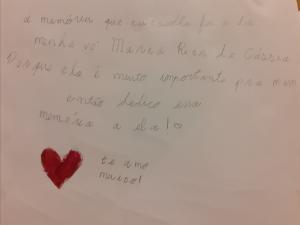 a memória que escolhi foi a da
minha vó Maria Rita de Cássia
Porque ela é muito importante pra mim
então dedico essa
memória a ela!♡
te amo
muito!